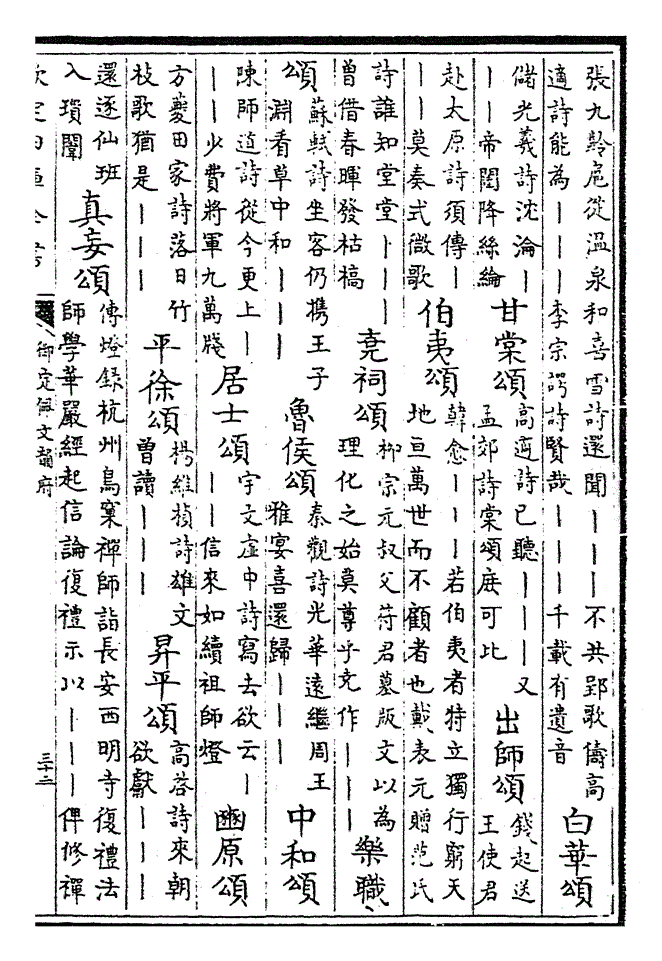 張九齡扈從温泉和喜雪詩還聞｜｜｜不共郢歌儔高
適詩能為｜｜｜李宗諤詩賢哉｜｜｜千載有遺音
白華頌
儲光羲詩沈淪｜
｜｜帝閽降絲綸
甘棠頌
高適詩已聽｜｜｜又
孟郊詩棠頌庶可比
出師頌
錢起送
王使君
赴太原詩須傳｜
｜｜莫奏式微歌
伯夷頌
韓愈｜｜｜若伯夷者特立獨行窮天
地亘萬世而不顧者也戴表元贈范氏
詩誰知堂堂｜｜｜
曽借春暉發枯槁
堯祠頌
柳宗元叔父府君墓版文以為
理化之始莫尊乎堯作｜｜｜
樂職、
頌
蘇軾詩坐客仍携王子
淵看草中和｜｜
魯侯頌
秦觀詩光華遠繼周王
雅宴喜還歸｜｜｜
中和頌
陳師道詩從今更上｜
｜｜少費將軍九萬牋
居士頌
宇文虚中詩寫去欲云｜
｜｜信來如續祖師燈
豳原頌
方夔田家詩落日竹
枝歌猶是｜｜｜
平徐頌
楊維楨詩雄文
曽讀｜｜｜
昇平頌
高啓詩來朝
欲獻｜｜｜
還逐仙班
入瑣闈
真妄頌
傳燈錄杭州鳥窠禪師詣長安西明寺復禮法
師學華嚴經起信論復禮示以｜｜｜俾修禪
欽定四庫全書
御定佩文韻府
三十二